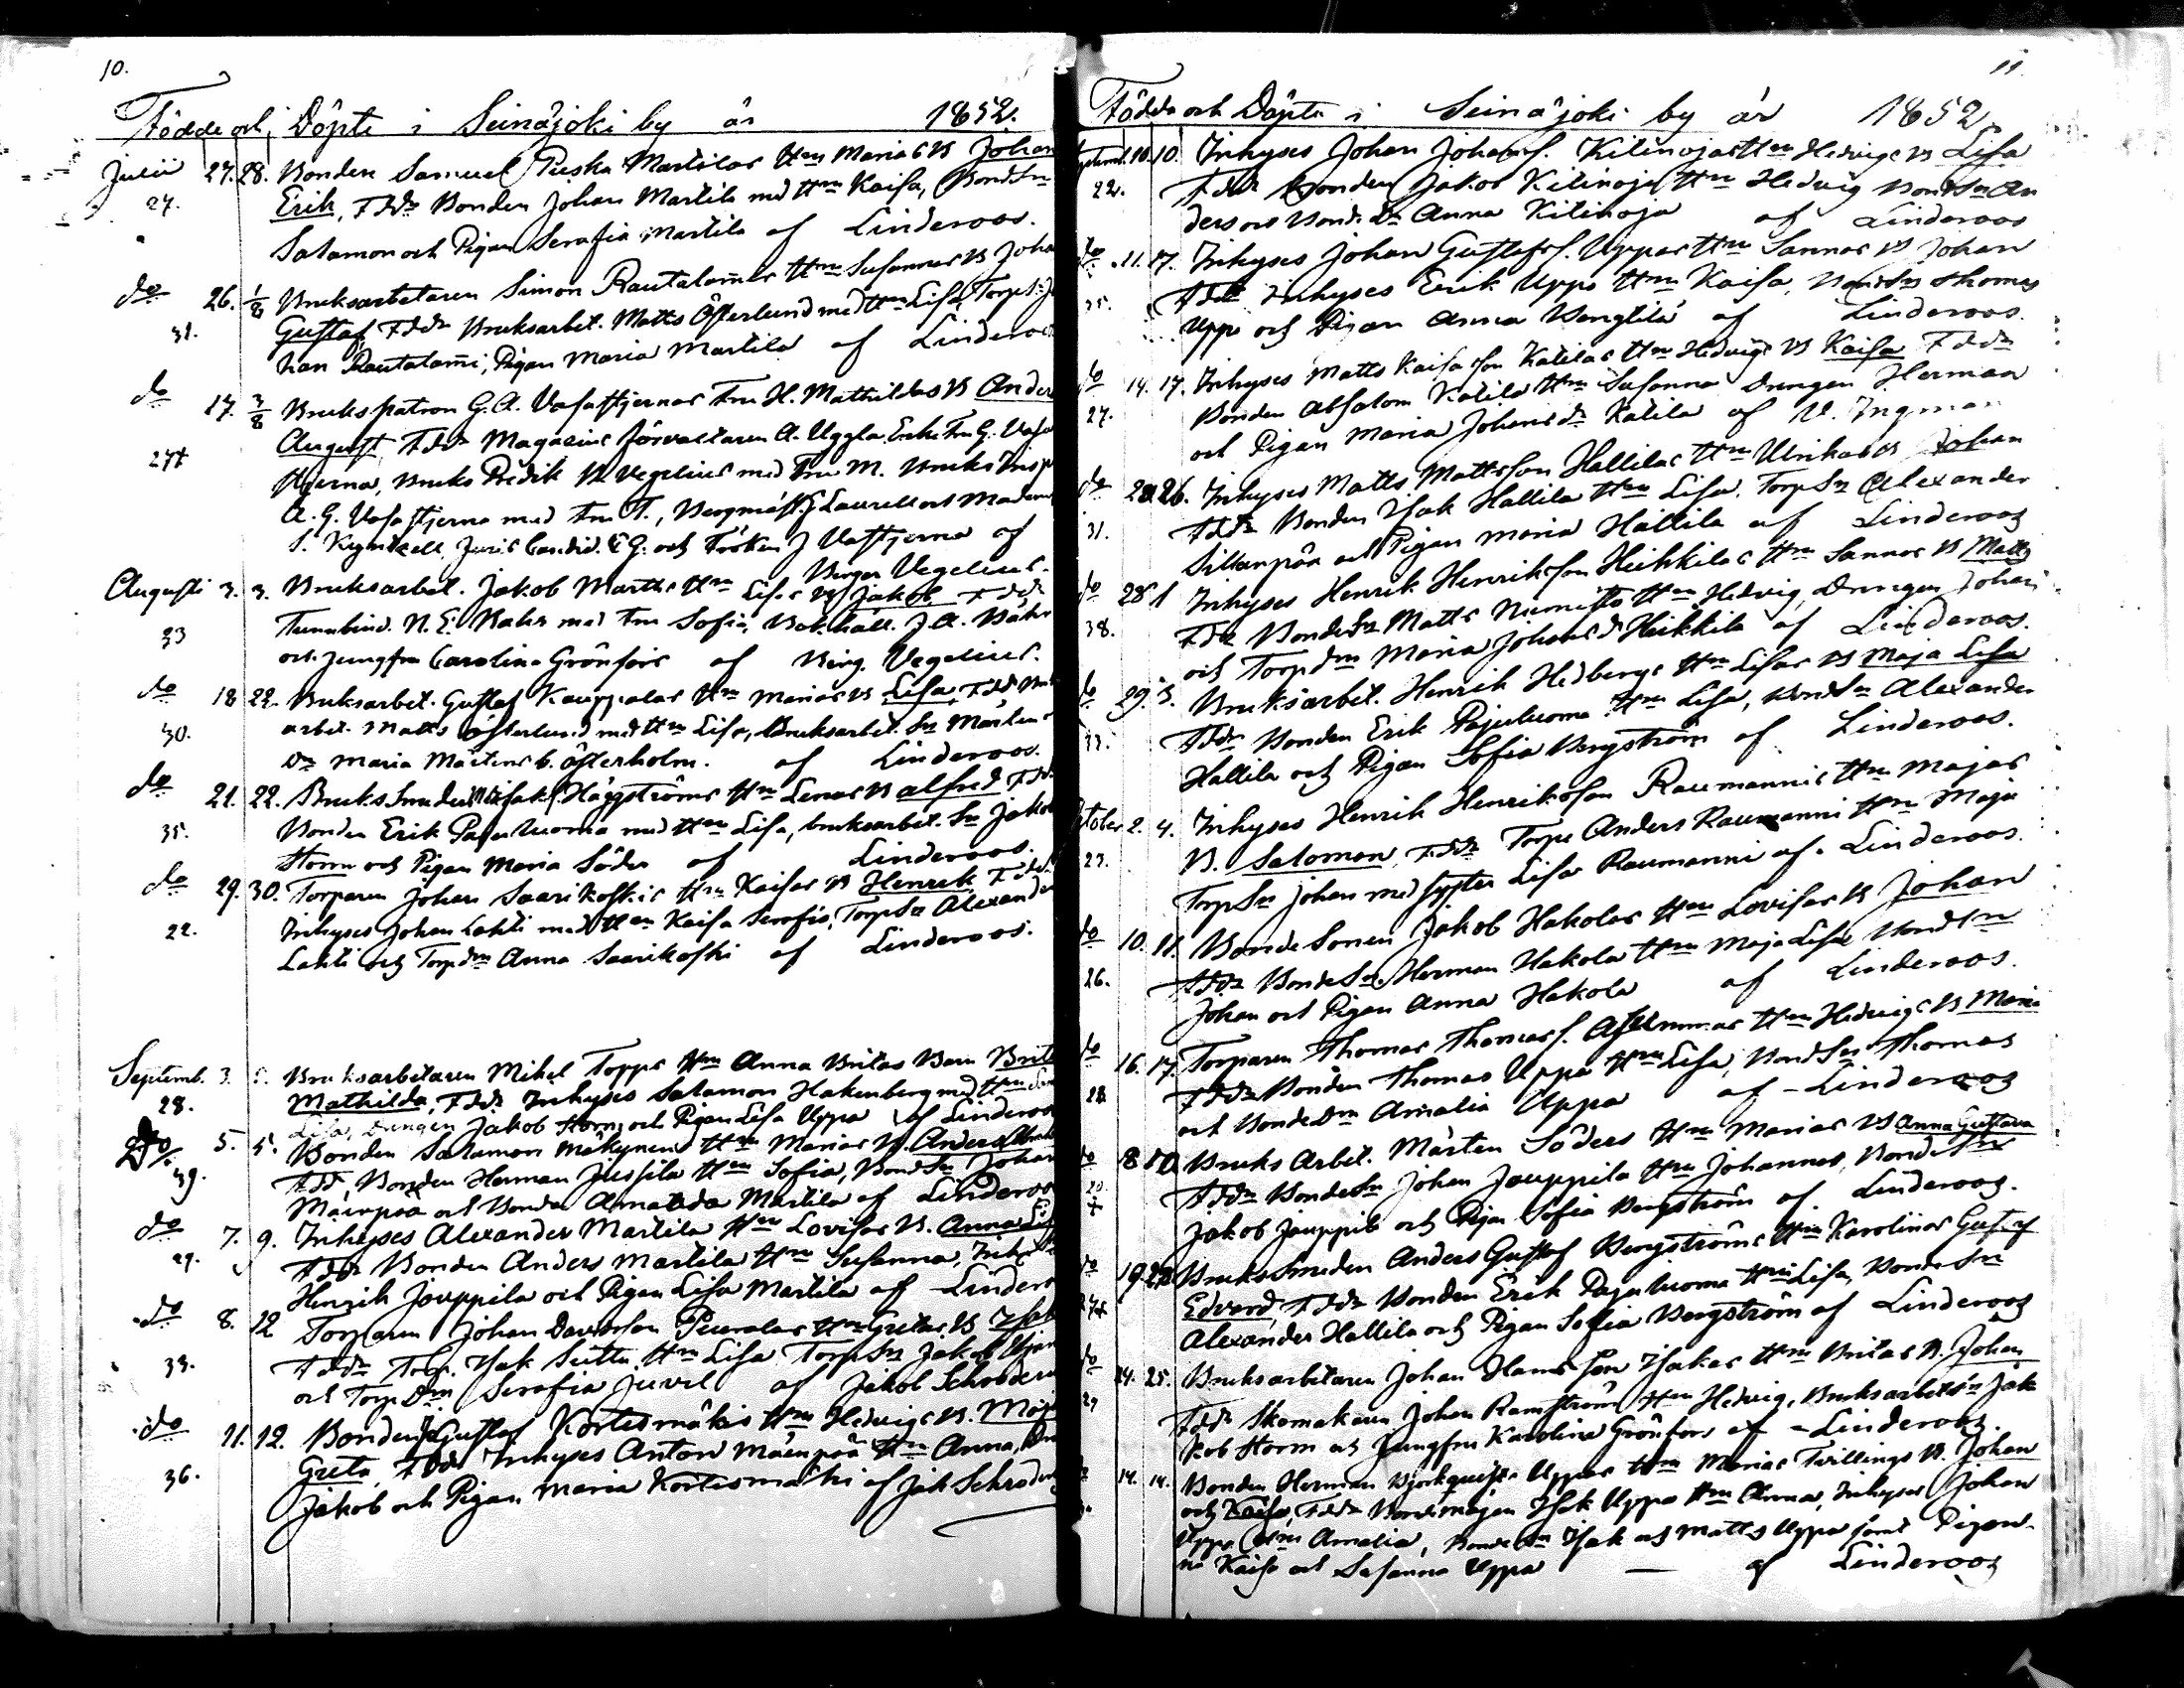 10.
Födde och Döpte i Seinäjoki by år 1852.
Julii 27. 28. Bonden Samuel Puska Martilas Hm Marias B Johan
27. Erik, Fddr Bonden Johan Martila med Hm Kaisa, BondeSn
Salamon och Pigan Serafia Martila af Linderoos.
do 26. 1/8 Bruksarbetaren Simon Rautalamis Hm Susannas B Joha
31. Gustaf, Fddr Bruksarbet. Matts Österlund med Hm Lisa, TorpS: Jo
han Rautalami, Pigan Maria Martila af Linderoo
do 17. 3/8 Brukspatron G. A. Vasastjernas Fru H. Mathildas B Anders
27 August, Fddr Magasins förvaltaren A. Uggla Enke Fru G. Vasa
stjerna, Bruks Predik B Vegelius med Fru M. Bruks Insp
A. G. Vasastjerna med Fru T., Bergmäst. J Laurell och Madem
S. Kyntzell, Juris Candid. E G. och Fröken J Vastjerna af
Berger Vegelius.
Augusti 3. 3. Bruksarbet. Jakob Marths Hm Lisas B Jakob Fddr
33 Tunnbind. N. E. Bahr med Fru Sofia, Bokhåll. J A. Båhr
och Jungfru Carolina Grönfors af Berg. Vegelius.
do 18 22. Bruksarbet. Gustaf Kauppalas Hm Marias B Lisa, Fddr Bruks
30. arbet. Matts Österlund med Hm Lisa, Bruksarbet. Sn Mårtens
Dr Maria Mårtens b. Österholm. af Linderoos.
do 21. 22. Bruks Smeden Isak Häggströms Hm Lenas B Alfred Fdd
35. Bonden Erik Pajuluoma med Hm Lisa, bruksarbet. Sn Jakob
Storm och Pigan Maria Söder af Linderoos.
do 29. 30. Torparen Johan Saarikoskis Hm Kaisas B Henrik, Fddr
22. Inhyses Johan Lahti med Hm Kaisa Serafia, TorpSn Alexander
Lahti och Torpdm Anna Saarikoski af Linderoos.
Septemb. 3. 5. Bruksarbetaren Mikel Topps Hm Anna Britas Barn Brita
28. Mathilda, Fddr Inhyses Salamon Hakenberg med Hm
Lisa, Drengen Jakob Storm och Pigan Lisa Uppa af Linderoo
Do 5. 5. Bonden Salamon Mäkynen Hm Marias B. Anders
39. Fddr, Bonden Herman Jussila Hm Sofia, BondeSn Johan
Mäenpää och Bonde Amalada Martila af Linderoo
do 7. 9. Inhyses Alexander Martila Hm Lovisas B. Anna Li
29. Fddr Bonden Anders Martila Hm Susanna, Inhys
Henrik Jouppila och Pigan Lisa Martila af Lindero
do 8. 12 Torparen Johan Davidsson Peuralas Hm Gretas B Isak
33. Fddr Torp. Isak Suttu Hm Lisa TorpSn Jakob
och TorpDm Serafia Juvel af Jakob Schroderu
do 11. 12. Bonden Gustaf Kortesmäkis Hm Hedvigs B. Maja
36. Greta, Fddr Inhyses Anton Mäenpää Hm Anna,
Jakob och Pigan Maria Kortesmäki af Jak Schroder
11.
Födda och Döpte i Seinäjoki by år 1852.
10. 10. Inhyses Johan Johans s. Kitinojas Hm Hedvigs B Lisa
22. Fddr Bonden Jakob Kitinoja Hm Hedvig BondeSn An
ders och Bonde Dr Anna Kitinoja af Linderoos
do 11. 17. Inhyses Johan Gustafs s. Uppas Hm Sannas B Johan
35. Fddr Inhyses Erik Uppa Hm Kaisa, BondeSn Thomas
Uppa och Pigan Anna Bengtila af Linderoos.
do 14. 17. Inhyses Matts Kaisasson Katilas Hm Hedvigs B Kaisa Fddr
27. Bonden Absalom Katila Hm Susanna Drengen Herman
och Pigan Maria Johansdr Katila af V. Ingman
do 20 26. Inhyses Matts Mattsson Hallilas Hm Ulrikas B Johan
31. Fddr Bonden Isak Hallila Hm Lisa. TorpSn Alexander
Sillanpää och Pigan Maria Hallila af Linderoos
do 28 1 Inhyses Henrik Henriksson Heikkilas Hm Sannas B Matts
38. Fddr BondeSn Matts Niemistö Hm Hedvig, Drengen Johan
och Torpdm Maria Johansdr Heikkilä af Linderoos.
do 29. 3. Bruksarbet. Henrik Hedbergs Hm Lisas B Maja Lisa
33. Fddr Bonden Erik Pajuluoma Hm Lisa, BondeSn Alexander
Hallila och Pigan Sofia Bergström af Linderoos.
October 2. 4. Inhyses Henrik Henriksson Raumannis Hm Majas
23. B. Salomon, Fddr Torp Anders Raumanni Hm Maja
TorpSn Johan med syster Lisa Raumanni af Linderoos.
do 10. 11. Bonde Sonen Jakob Hakolas Hm Lovisas B Johan
26. Fddr BondeSn Herman Hakola Hm Maja Lisa BondeSn
Johan och Pigan Anna Hakola af Linderoos.
do 16. 17. Torparen Thomas Thomas s. Asunmas Hm Hedvigs B Maria
28 Fddr Bonden Thomas Uppa Hm Lisa, BondeSn Thomas
och BondeDm Amalia Uppa af Linderoos
do 18 Bruks Arbet. Mårten Söders Hm Marias B Anna Gustava
20 Fddr BondeSn Johan Jouppila Hm Johannas, BondeSn
Jakob Jouppila och Pigan Sofia Bergström af Linderoos.
do 19. Bruks Smeden Anders Gustaf Bergströms Hm Karolinas Gustaf
Edvard, Fddr Bonden Erik Pajuluoma Hm Lisa, BondeSn
Alexander Hallila och Pigan Sofia Bergström af Linderoos
do 24. 25. Bruksarbetaren Johan Hansson Isakas Hm Britas B. Johan
29 Fddr Skomakaren Johan Ramström Hm Hedvig, Bruksarbets Sn Jak
kob Storm och Jungfru Karolina Grönfors af Linderoos.
14. 14. Bonden Herman Björkqvists Uppas Hm Marias Tvillings B. Johan
och Kaisa, Fddr Bondemågen Isak Uppa Hm Anna, Inhyses Johan
Uppa Hm Amalia, BondeSn Isak och Matts Uppa samt Pigor
na Kaisa och Susanna Uppa — af Linderoos